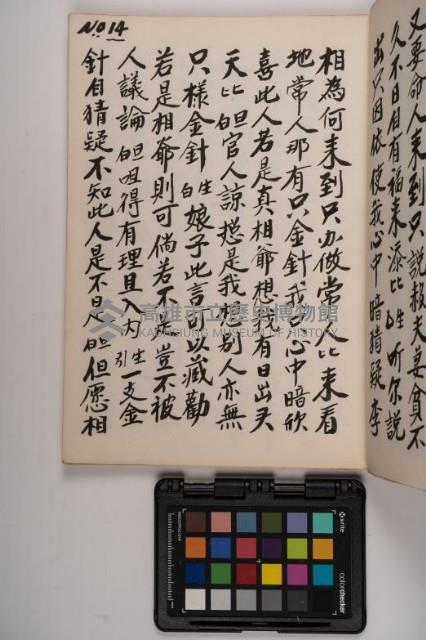 又要命人来到只說報夫妻貧不
久不日自有福来添比生听尔說
出只因依使我心中暗猜疑李
No 14
相為何来到只办做常人比来看
地常人那有只金針我己心中暗欣
喜此人若是真相爺想我有日出头
天比旦官人諒想是我相別人亦無
只樣金針白生娘子此言可以藏勸
若是相爺則可倘若不是豈不被
人議論白旦咀得有理且入内生引一支金
針自猜疑不知此人是不是旦但愿相
高雄市立歷史博物館
KAOHSIUNG MUSEUM OF HISTORY
x-rite
colorchecker